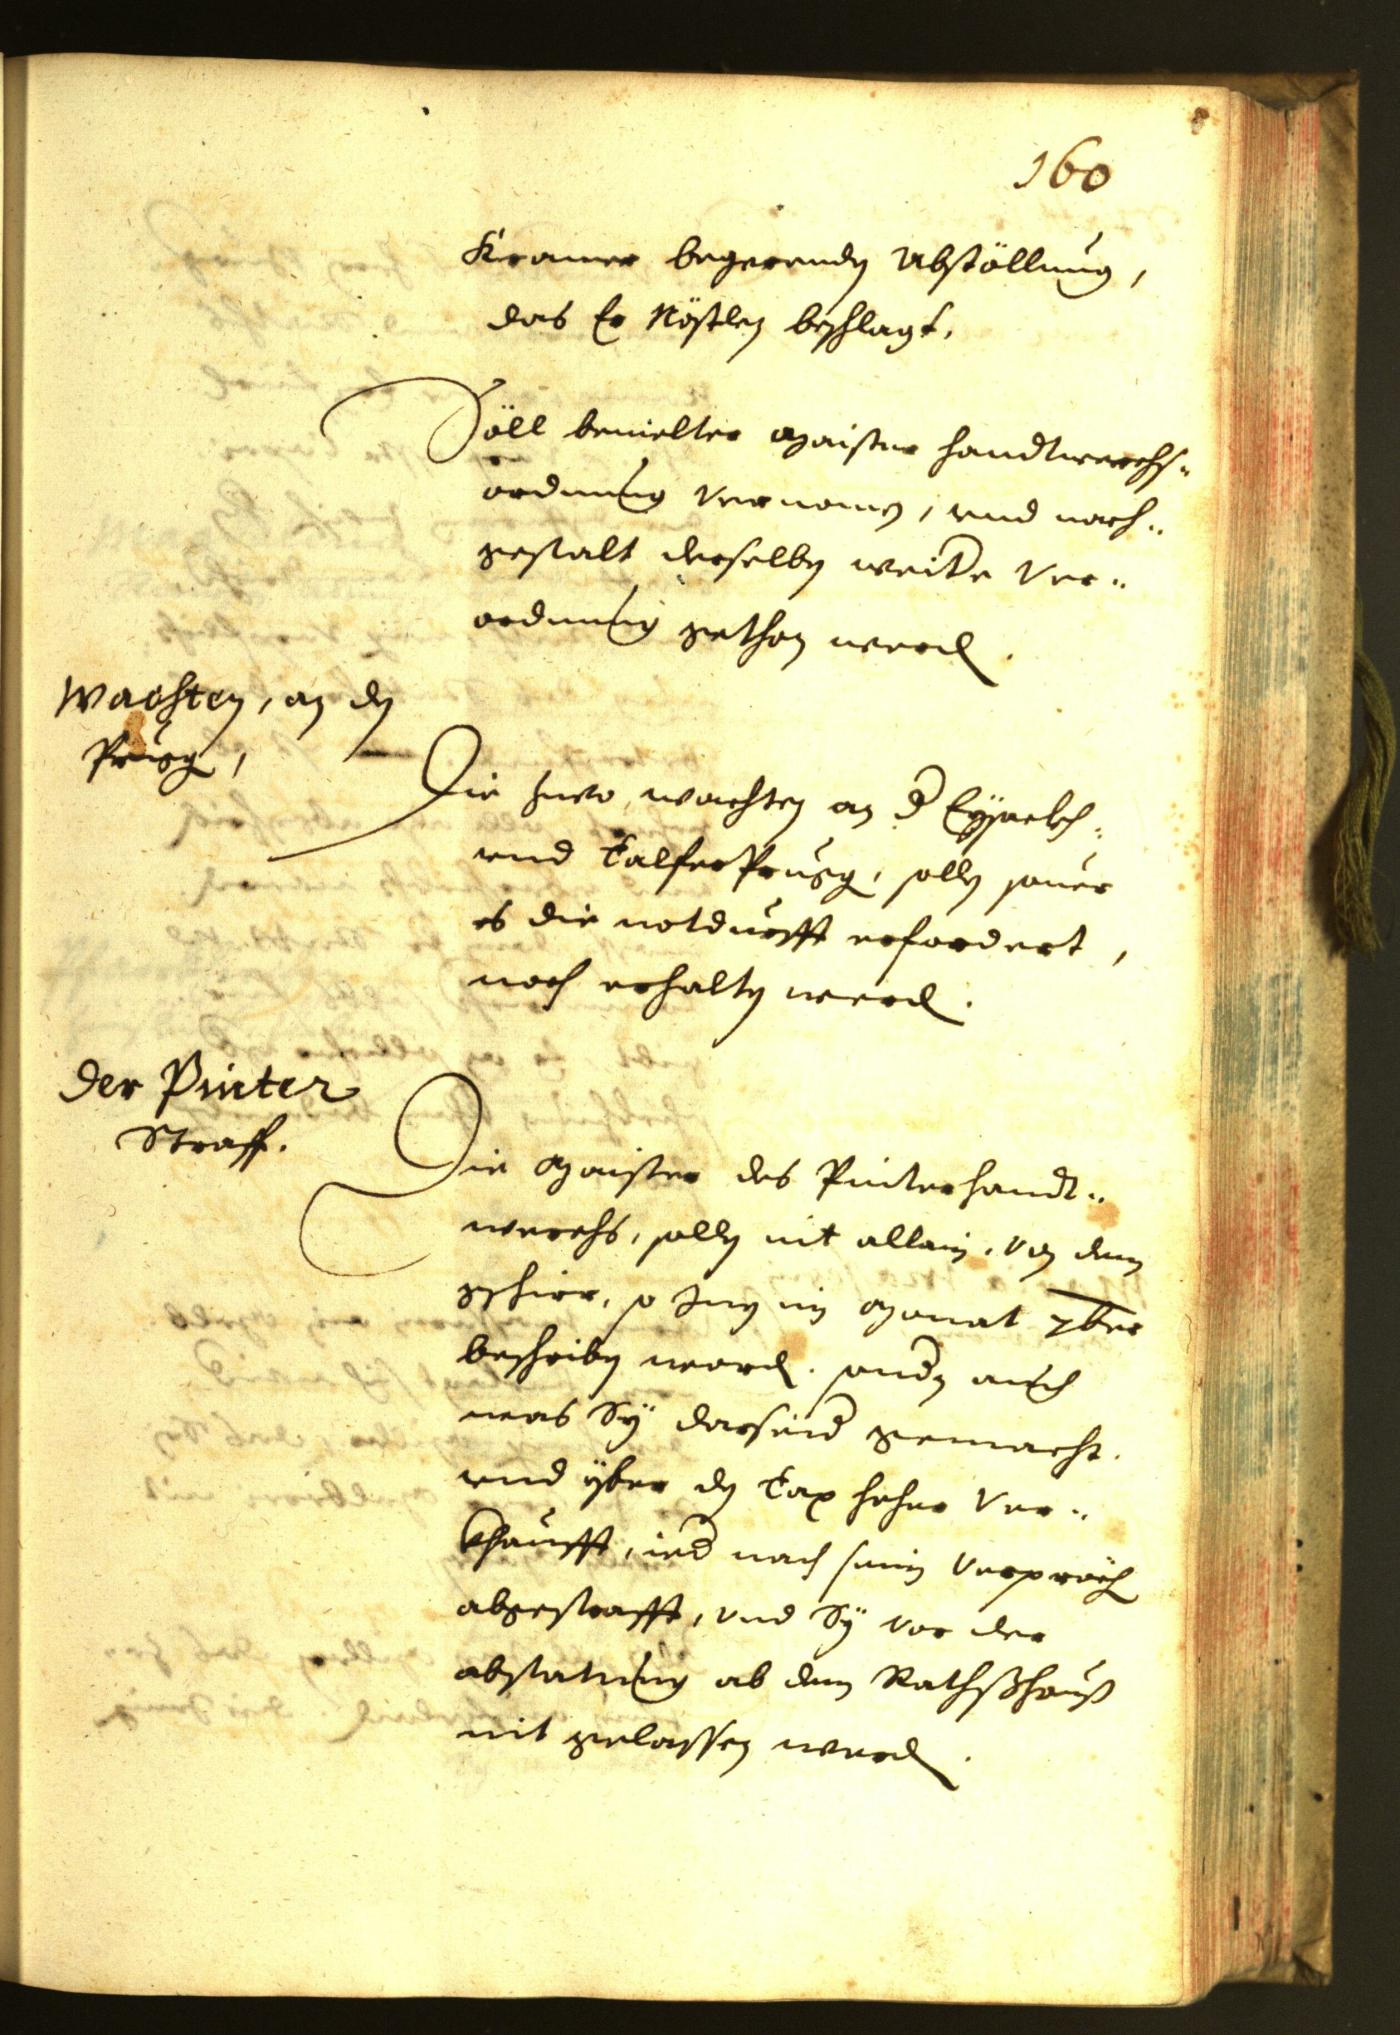 160
Kramer begerenden Abstöllung,
das Er Nöstlen beschlagt.
Söll bemelter Maister Handtwerchs„
ordnung vernomen, und nach„
gestalt derselben weite Ver„
ordnung gethan werden.
Wachten, an den
Prugg,
Die zwo wachten an der Eysackh„
und Talferprugg, sollen souer
es die notdurfft erfordert,
noch erhalten werden.
Der Pinter
Straff.
Die Maister des Pinterhandt„
werchs, sollen nit allain, von dem
gschirr, so Inen im Monat 7ber
beschriben worden. sonder auch
was Sÿ darseid gemacht.
und ÿber den Tax höher ver„
khaufft, ieder nach seinem Versprech
abgestrafft, und Sÿ vor der
abstatung ab dem Rathßhauß
nit gelassen werden.